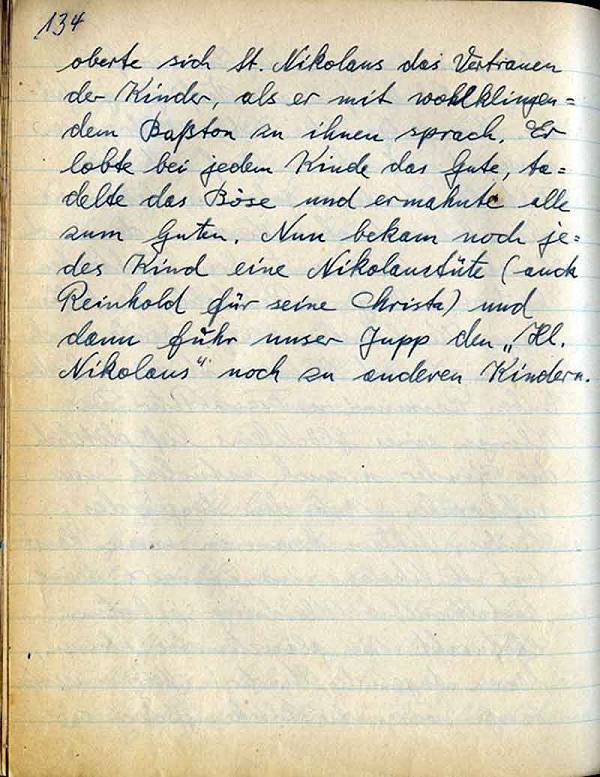 134
oberte sich St. Nikolaus das Vertrauen
der Kinder, als er mit wohlklingen=
dem Baßton zu ihnen sprach. Er
lobte bei jedem Kinde das Gute, ta=
delte das Böse und ermahnte alle
zum Guten. Nun bekam noch je=
des Kind eine Nikolaustüte (auch
Reinhold für seine Christa) und
dann fuhr unser Jupp den „Hl.
Nikolaus“ noch zu anderen Kindern.